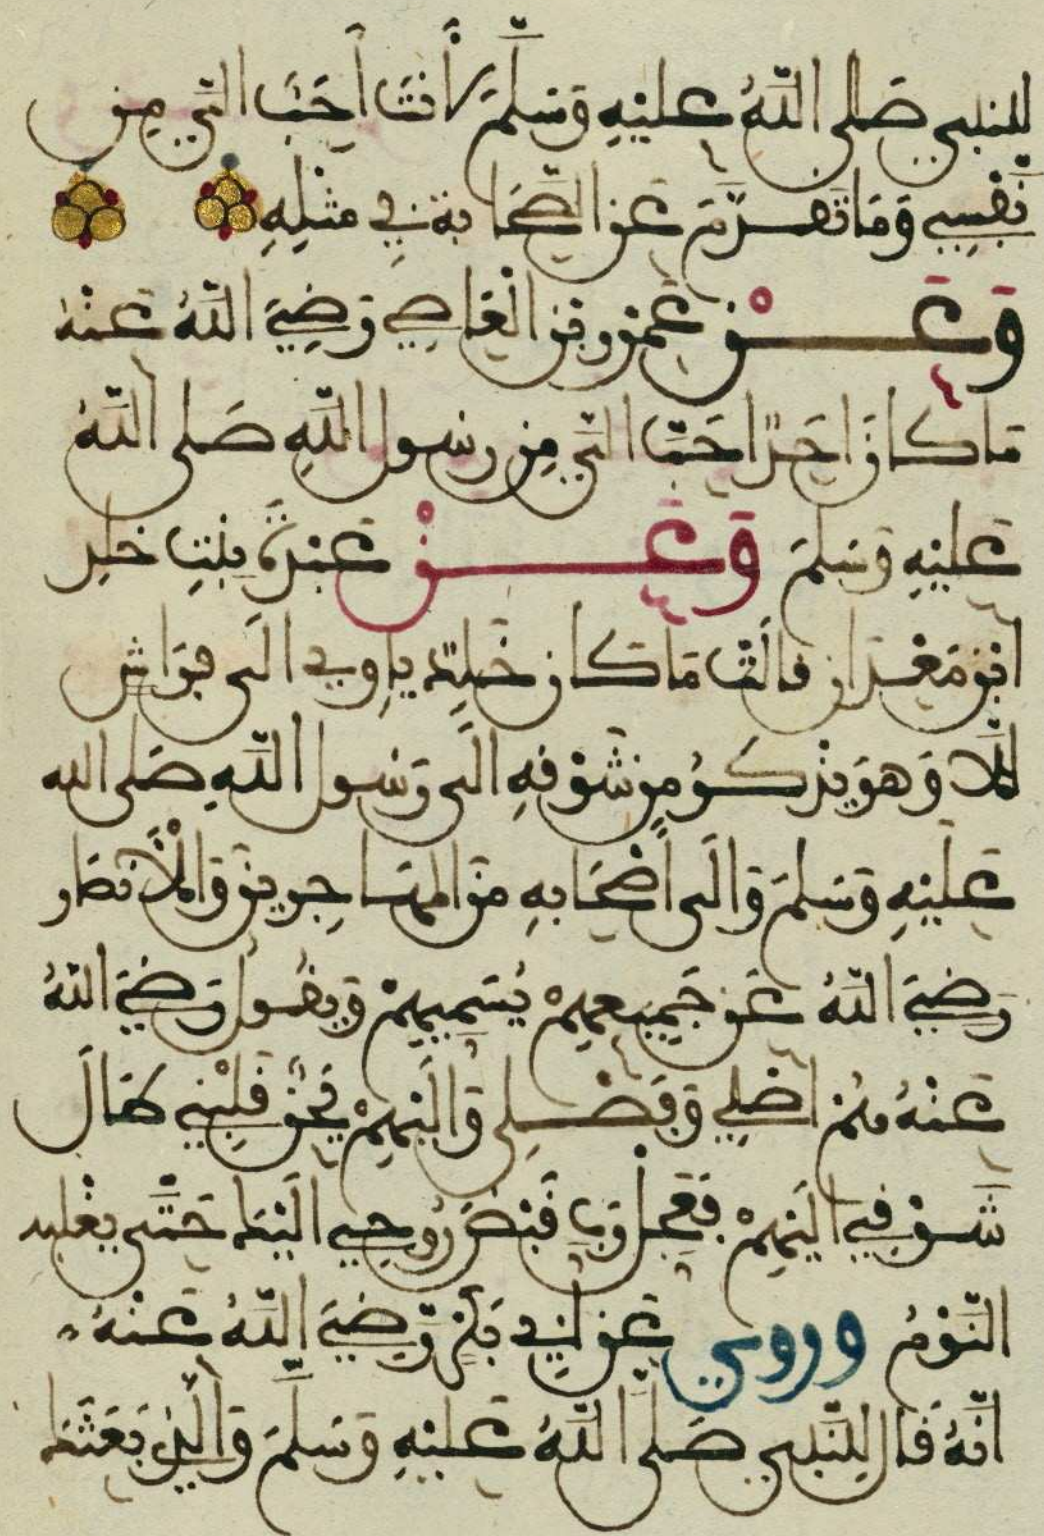 للنبي صَلى اللَّهُ عليْهِ وَسَلَّمَ لأَنْتَ أَحَبُّ إلَيَّ مِن
نَّفْسِي وَمَا تَقَدَّمَ عَنِ الصَّحَابَةِ فِي مِثْلِهِ
وَعَنْ عَمْرِو بْنِ الْعَاصِي رَضِيَ اللَّهُ عَنْهُ
مَا كَانَ أَحَدٌ أَحَبَّ إلَيَّ مِن رسولِ اللَّهِ صَلى اللَّهُ
عَلَيْهِ وَسَلَّمَ وَعَنْ عَبْدَةَ بِنْتِ خلِدِ
ابْنِ مَعْدَان قالَتْ مَا كَان خَلِدٌ يَاوِي إلَى فِرَاشٍ
إلَّا وَهوَ يَذْكُرُ مِن شَوْقِهِ إلَى رَسولِ اللَّهِ صَلى الله
عَلَيْهِ وَسَلَّمَ وَإلَى أَصْحَابِهِ مِنَ الْمُهَاجِرِينَ وَالْأَنصَارِ
رَضِيَ اللَّهُ عَن جَمِيعِهِمْ يُسَمِّيهِمْ وَيَقُولُ رَضِيَ اللَّهُ
عَنْهُ هُمْ أَصْلِي وَفَصْلِي وَإلَيْهِمْ يَحِنُّ قَلْبِي طَالَ
شَوْقِي إلَيْهِمْ فَعَجِّلْ رَبِّ قَبْضَ رُوحِي إلَيْكَ حَتَّى يَغْلِبَه
النَّوْمُ وروي عَن أَبِي بَكْرٍ رَّضِيَ اللَّهُ عَنْهُ
أَنَّهُ قَالَ لِلنَّبِي صَلَّى اللَّهُ عَلَيْهِ وَسَلَّمَ وَالَّذِي بَعَثَكَ